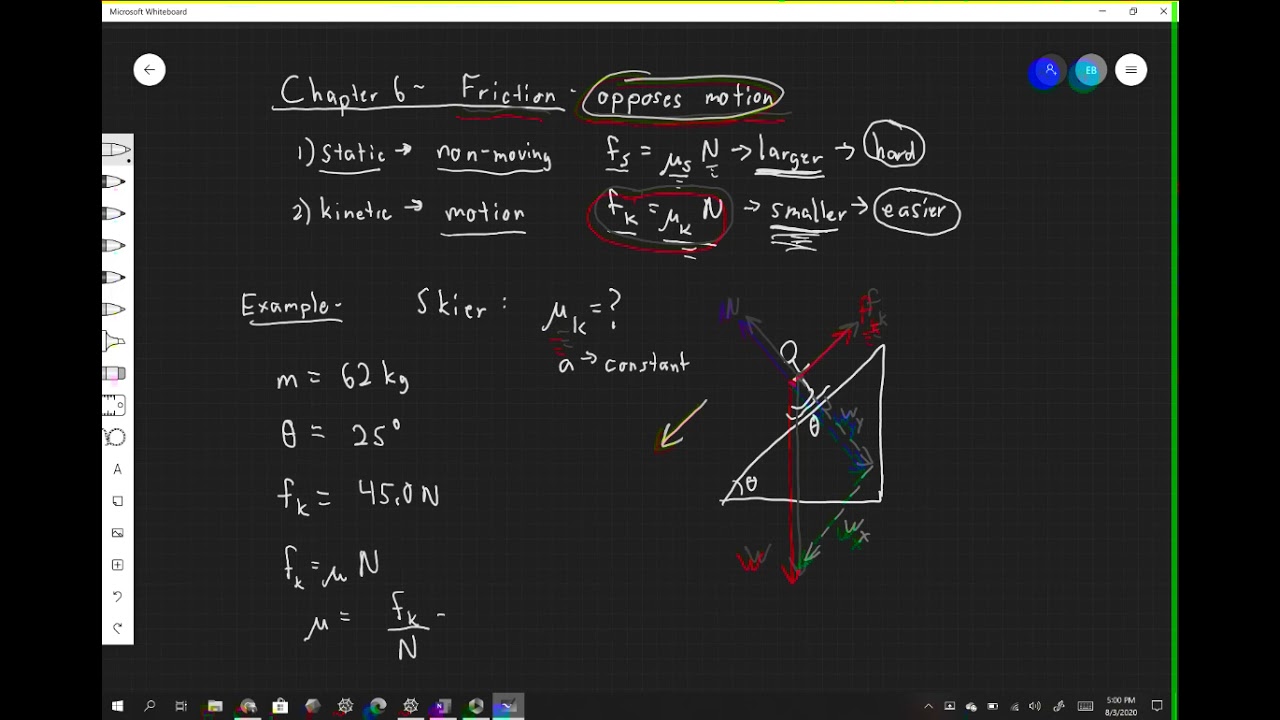 Microsoft Whiteboard
EB
Chapter 6~ Friction - opposes motion
1) static → non-moving fs = μs N → larger → hard
2) kinetic → motion fk = μk N → smaller → easier
Example- Skier: μk = ?
a → constant
m = 62 kg
θ = 25°
fk = 45.0 N
fk = μ N
μ = fk / N -
N
fk
θ
Wy
θ
Wx
W
A
5:00 PM
8/3/2020